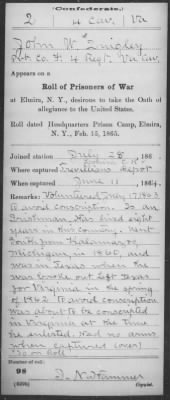 (Confederate.)
2 | 4 Cav. | Va
John W. Quigley
Pvt Co. F, 4 Regt. Va. Cav.
Appears on a
Roll of Prisoners of War
at Elmira, N. Y., desirous to take the Oath of
allegiance to the United States.
Roll dated Headquarters Prison Camp, Elmira,
N. Y., Feb. 15, 1865.
Joined station July 28 186
Where captured Trevilians Depot
When captured June 11, 1864.
Remarks: Volunteered May 17, 1863
to avoid conscription. Is an
Irishman. Has lived eight
years in this country. Went
South from Kalamazoo,
Michigan, in 1860, and
was in Texas when the
war broke out. Left Texas
for Virginia in the spring
of 1862 to avoid conscription
was about to be conscripted
in Virginia at the time
he enlisted. Had no arms
when captured (over)
Number of roll:
98
(639b)
Copyist.